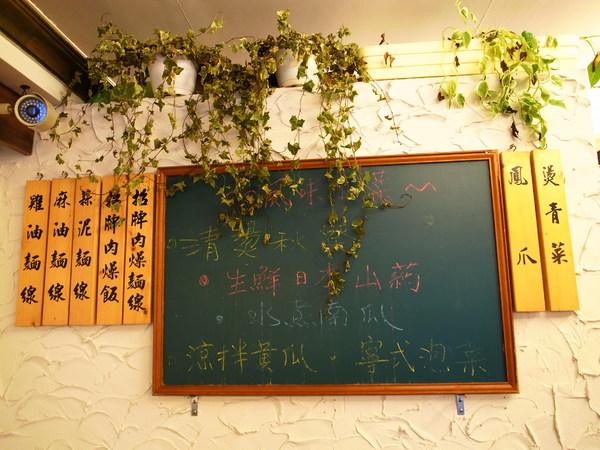 雞油麵線
麻油麵線
蒜泥麵線
招牌肉燥飯
招牌肉燥麵線
風味小菜~
清燙秋
生鮮日本山藥
水煮南瓜
涼拌黃瓜.寧式泡菜
鳳爪
燙青菜